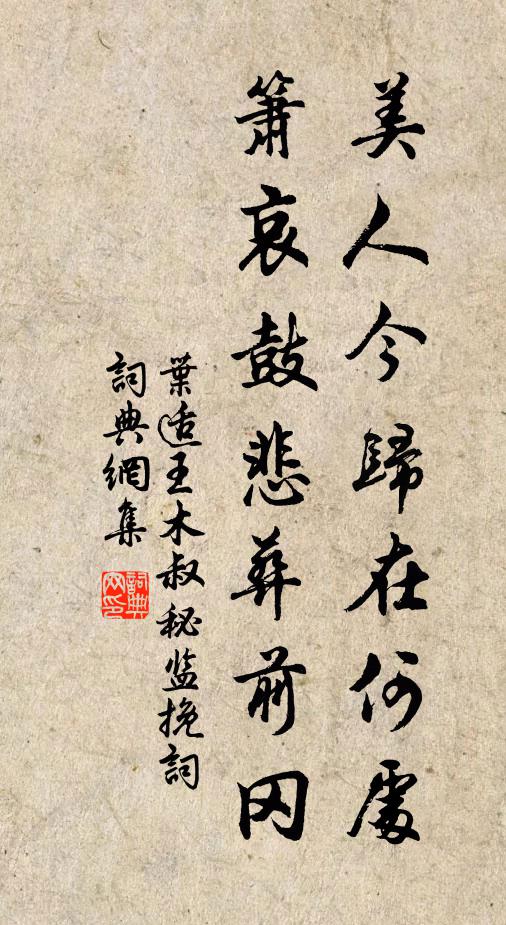 美人今歸在何處
簫哀鼓悲葬前冈
葉适王木叔秘监挽詞
詞典網集
詞典网印